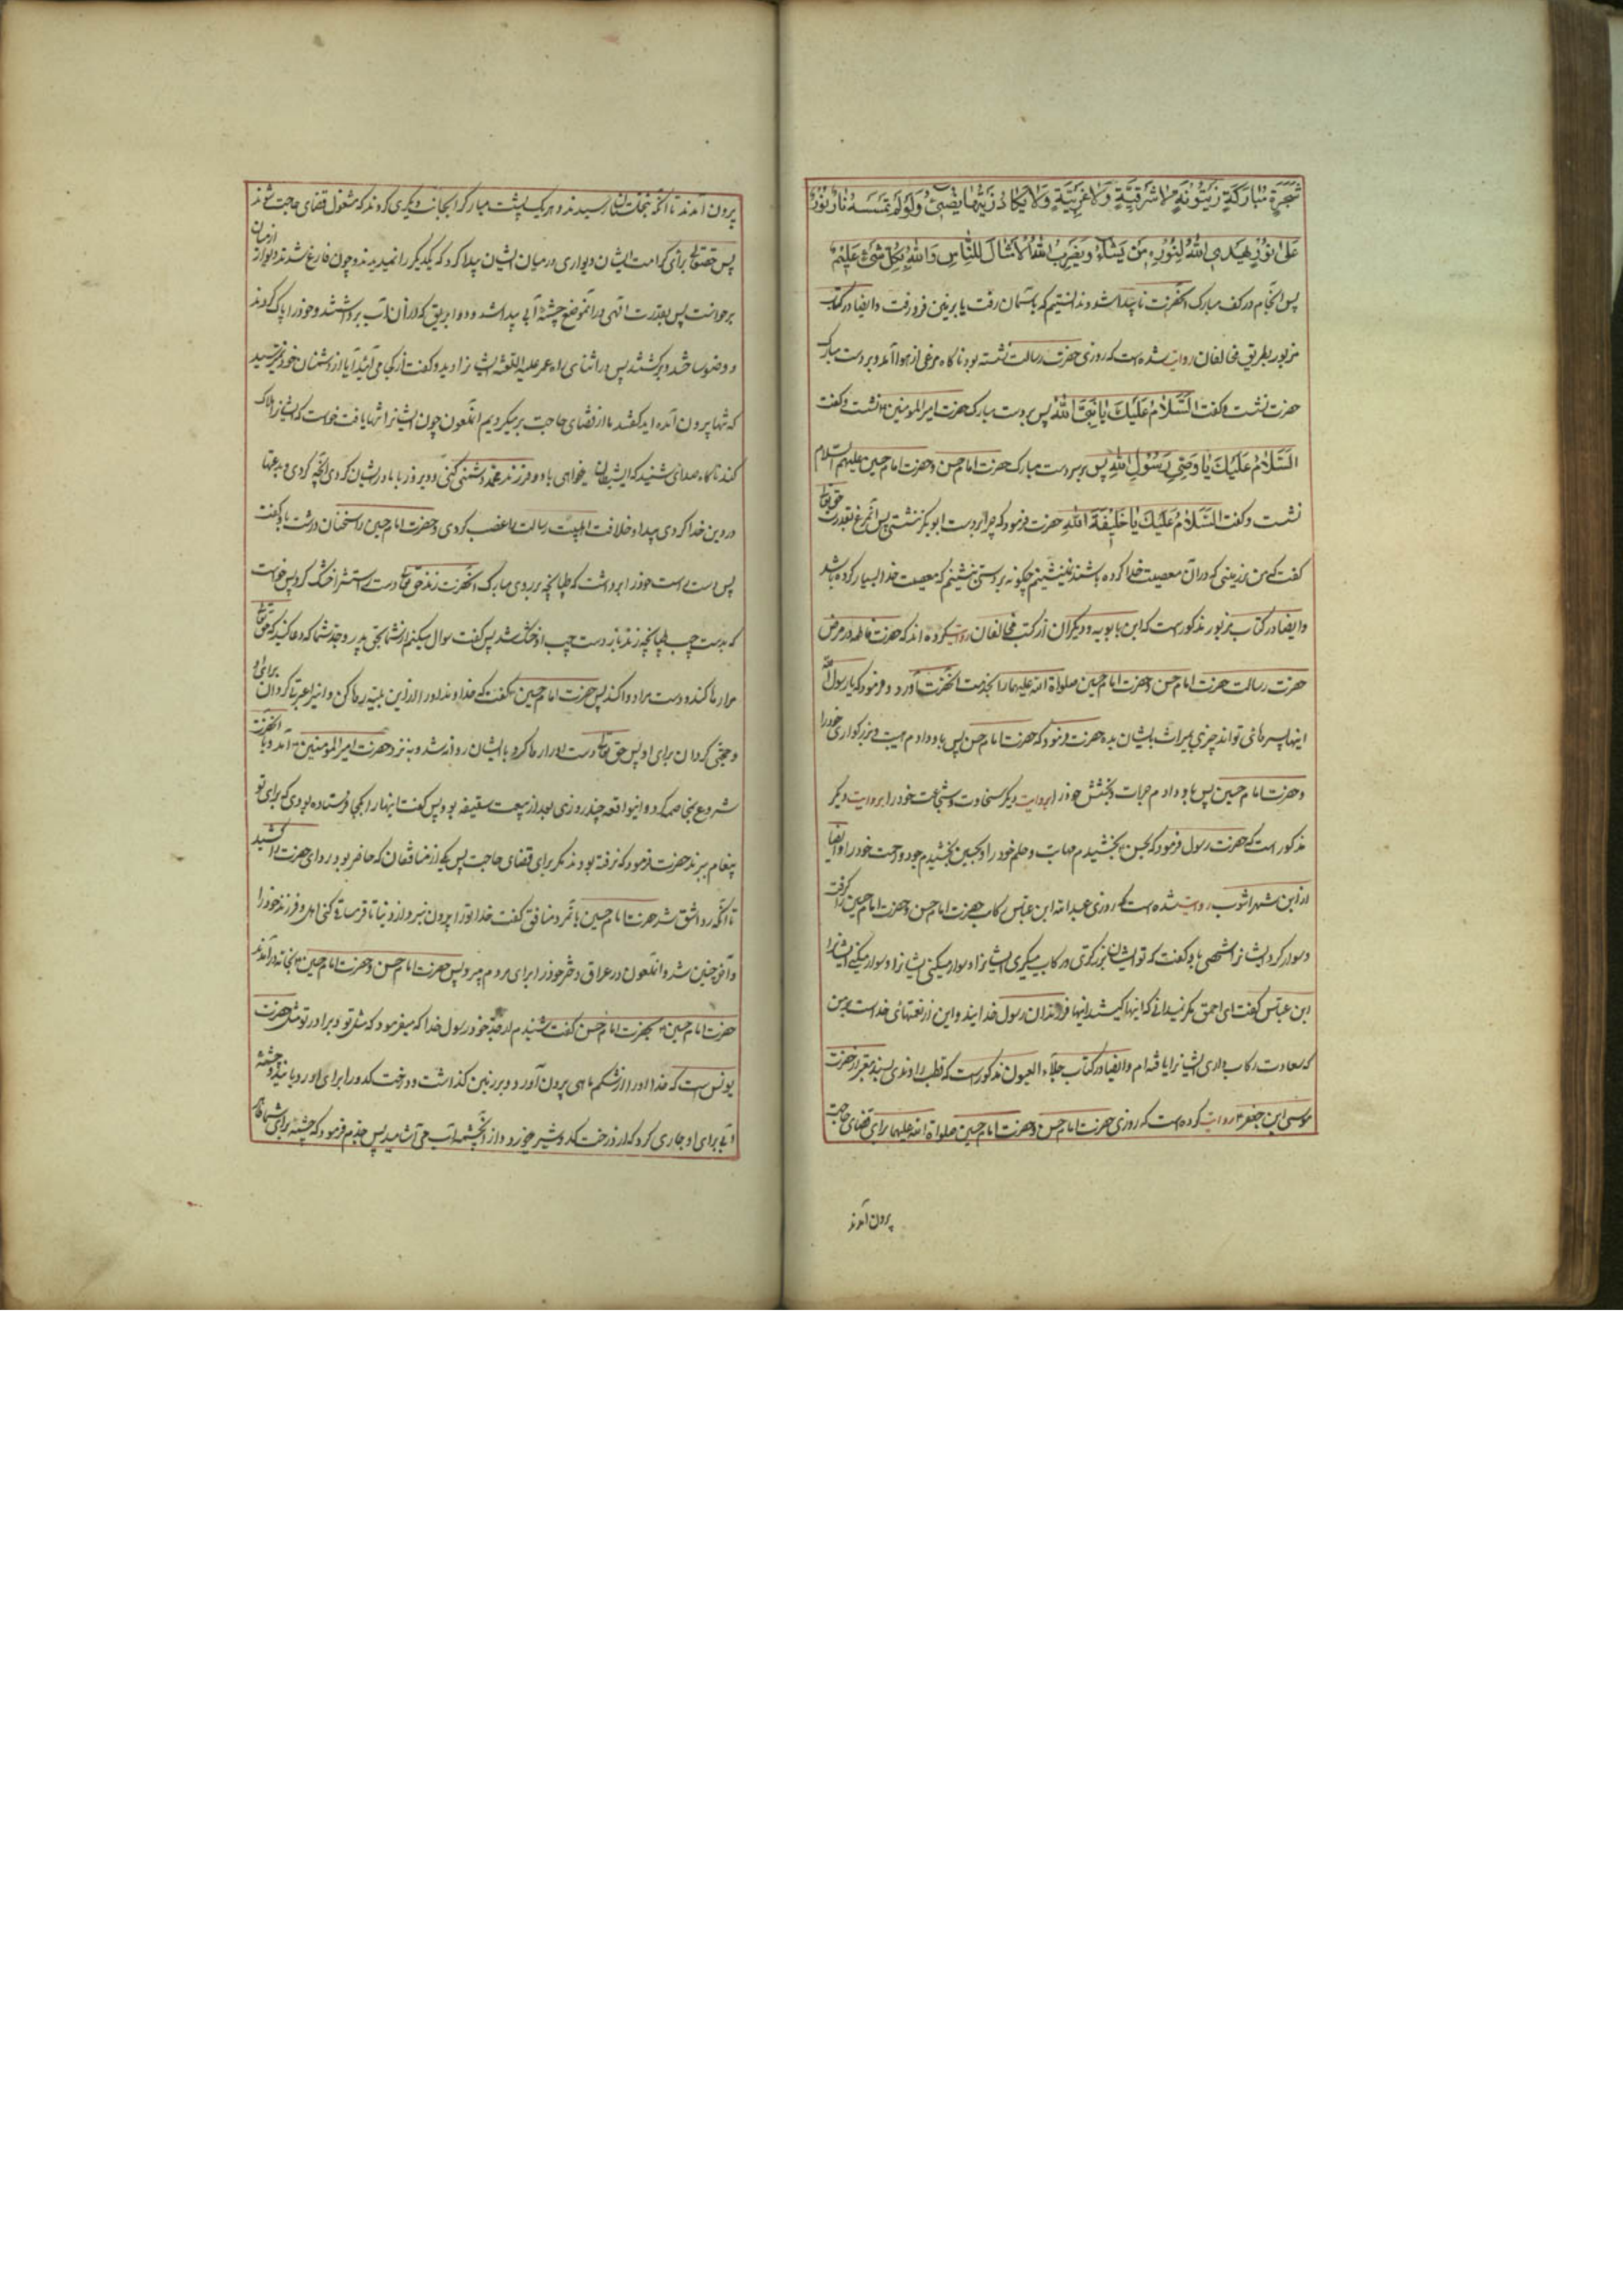 شَجَرَةٍ مُبَارَكَةٍ زَيْتُونَةٍ لَا شَرْقِيَّةٍ وَلَا غَرْبِيَّةٍ يَكَادُ زَيْتُهَا يُضِيءُ وَلَوْ لَمْ تَمْسَسْهُ نَارٌ نُورٌ
عَلَىٰ نُورٍ يَهْدِي اللَّهُ لِنُورِهِ مَنْ يَشَاءُ وَيَضْرِبُ اللَّهُ الْأَمْثَالَ لِلنَّاسِ وَاللَّهُ بِكُلِّ شَيْءٍ عَلِيمٌ
پس آن جام در کف مبارک آنحضرت ناپیدا شد و ندانستیم که بآسمان رفت یا بزمین فرو رفت و ایضا در کتاب
مزبور بطریق مخالفان روایت شده است که روزی حضرت رسالت نشسته بود ناگاه مرغی از هوا آمد و بر دست مبارک
حضرت نشست و گفت اَلسَّلَامُ عَلَيْكَ يَا نَبِيَّ اللهِ پس بر دست مبارک حضرت امیرالمؤمنین نشست و گفت
اَلسَّلَامُ عَلَيْكَ يَا وَصِيَّ رَسُولِ اللهِ پس بر سر دست مبارک حضرت امام حسن و حضرت امام حسین علیهم السلام
نشست و گفت اَلسَّلَامُ عَلَيْكَ يَا خَلِيفَةَ اللهِ حضرت فرمود که چرا بر دست ابو بکر ننشستی پس آنمرغ بقدرت حق تعالی
گفت که من در زمینی که در آن معصیت خدا کرده باشند نمینشینم چگونه بر دستی نشینم که معصیت خدا بسیار کرده باشد
و ایضا در کتاب مزبور مذکور است که ابن بابویه و دیگران از کتب مخالفان روایت کرده اند که حضرت فاطمه در مرض
حضرت رسالت حضرت امام حسن و حضرت امام حسین صلواة الله علیهما را بخدمت آنحضرت آورد و فرمود که یا رسول الله
اینها پسر مانی تواند چیزی بمیراث بایشان بده حضرت فرمود که حضرت امام حسن پس باو دادم هیبت و بزرگواری خود را
و حضرت امام حسین پس باو دادم جرات و بخشش خود را بروایت دیگر سخاوت و شجاعت خود را بروایت دیگر
مذکور است که حضرت رسول فرمود که بحسن بخشیدم مهابت و حلم خود را و بحسین بخشیدم جود و رحمت خود را و ایضا
از ابن شهر اشوب روایت شده است که روزی عبدالله ابن عباس رکاب حضرت امام حسن و حضرت امام حسین را گرفت
و سوار کرد ایشانرا شخصی باو گفت که تو از ایشان بزرگتری رکاب میگیری ایشانرا و سوار میکنی ایشانرا
ابن عباس گفت ای احمق مگر نمیدانی که اینها کیستند اینها فرزندان رسول خدایند و این از نعمتهای خداست بر من
که سعادت رکاب داری ایشانرا یافته ام و ایضا در کتاب جلاء العیون مذکور است که قطب راوندی بسند معتبر از حضرت
موسی ابن جعفر روایت کرده است که روزی حضرت امام حسن و حضرت امام حسین صلواة الله علیهما برای قضای حاجت
بیرون آمدند
بیرون آمدند تا آنکه بنخلستان رسیدند و هر یک پشت مبارک را بجانب دیگری کردند که مشغول قضای حاجت شوند
پس حقتعالی برای کرامت ایشان دیواری در میان ایشان پیدا کرد که یکدیگر را نمیدیدند و چون فارغ شدند دیوار از میان
برخواست پس بقدرت الهی در آنموضع چشمۀ آبی پیدا شد و دو ابریق که از آن آب برداشتند و خود را پاک کردند
و وضو ساختند و برگشتند پس در اثنای راه عمر علیه اللعنه ایشانرا دید و گفت از کجا می آئید آیا از دشمنان خود نترسید
که تنها بیرون آمده اید گفتند ما از قضای حاجت بر میگردیم آنملعون چون ایشانرا تنها یافت خواست که ایشانرا هلاک
کند ناگاه صدای شنید که ای شیطان میخواهی با دو فرزند محمد دشمنی کنی و دیروز با مادر ایشان کردی آنچه کردی و بدعتها
در دین خدا کردی پیدا و خلافت اهلبیت رسالت را غصب کردی و حضرت امام حسین را سخنان درشت باو گفت
پس دست راست خود را برداشت که طپانچه بر روی مبارک آنحضرت زند حق تعالی دست راستش را خشک کرد پس خواست
که بدست چپ طپانچه زند باز دست چپ او خشک شد پس گفت سوال میکنم از شما بحق پدر و جد شما که دعا کنید که حق تعالی
مرا رها کند و دست مرا وا کند پس حضرت امام حسین گفت که خداوندا او را از این بلیه رها کن و اینرا عبرتی گردان برای او
و حجتی گردان برای او پس حق تعالی دست او را رها کرد و با ایشان روانه شد و به نزد حضرت امیرالمؤمنین آمد و با آنحضرت
شروع بمخاصمه کرد و اینواقعه چند روزی بعد از بیعت سقیفه بود پس گفت اینهارا بکجا فرستاده بودی که برای تو
پیغام ببرند حضرت فرمود که نرفته بودند مگر برای قضای حاجت پس یکی از منافقان که حاضر بود ردای حضرت را کشید
تا آنکه ردا شق شد حضرت امام حسین با نمرد منافق گفت خدا تو را بیرون نبرد از دنیا تا
و آخر چنین شد و آنملعون در عراق دختر خود را برای مردم میبرد پس حضرت امام حسن و حضرت امام حسین بخانه در آمدند
حضرت امام حسین بحضرت امام حسن گفت شنیدم از جد خود رسول خدا که میفرمود که مثل تو و برادر تو مثل حضرت
یونس است که خدا او را از شکم ماهی بیرون آورد و بر زمین گذاشت و درخت کدو را برای او رویانید و چشمه
آبی برای او جاری کرد که از درخت کدو شیر میخورد و از آنچشمه آب می آشامید پس جدم فرمود که چشمه برای شما